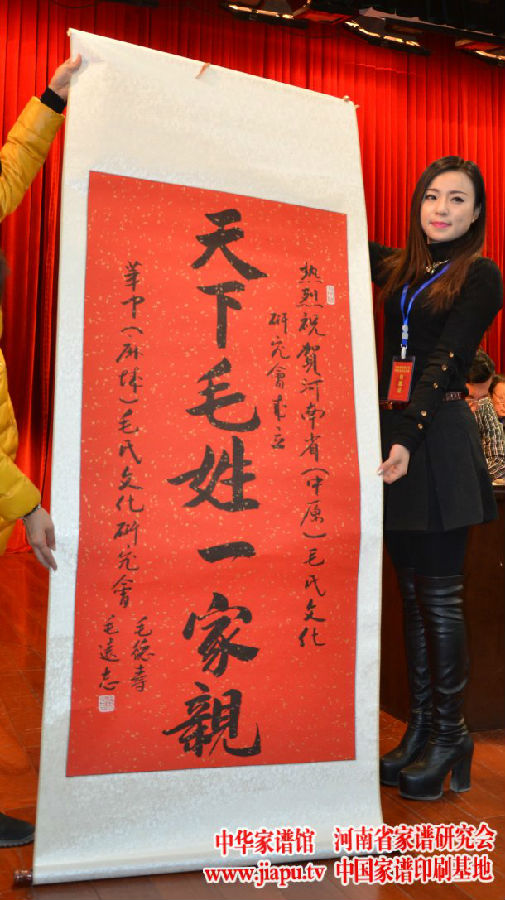 热烈祝贺河南省（中原）毛氏文化
研究會成立
天下毛姓一家親
華中（麻城）毛氏文化研究會
毛德寿
毛遠志
中华家谱馆 河南省家谱研究会
www.jiapu.tv 中国家谱印刷基地